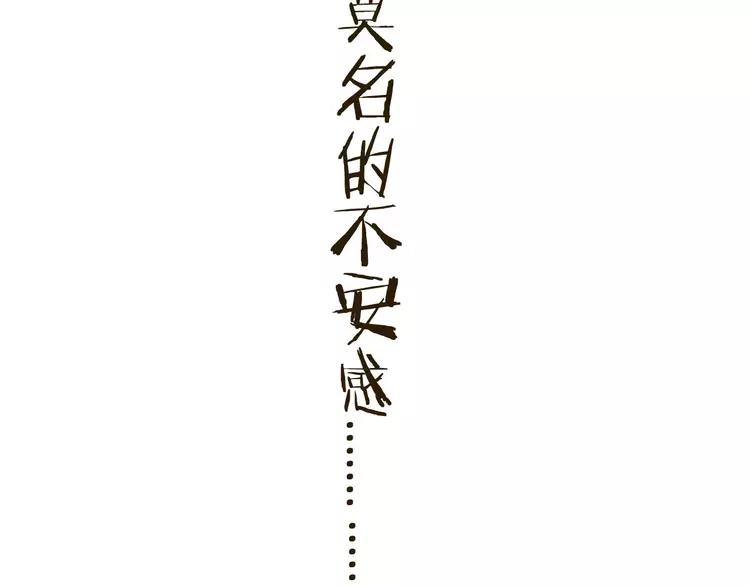 莫名的不安感…… ……